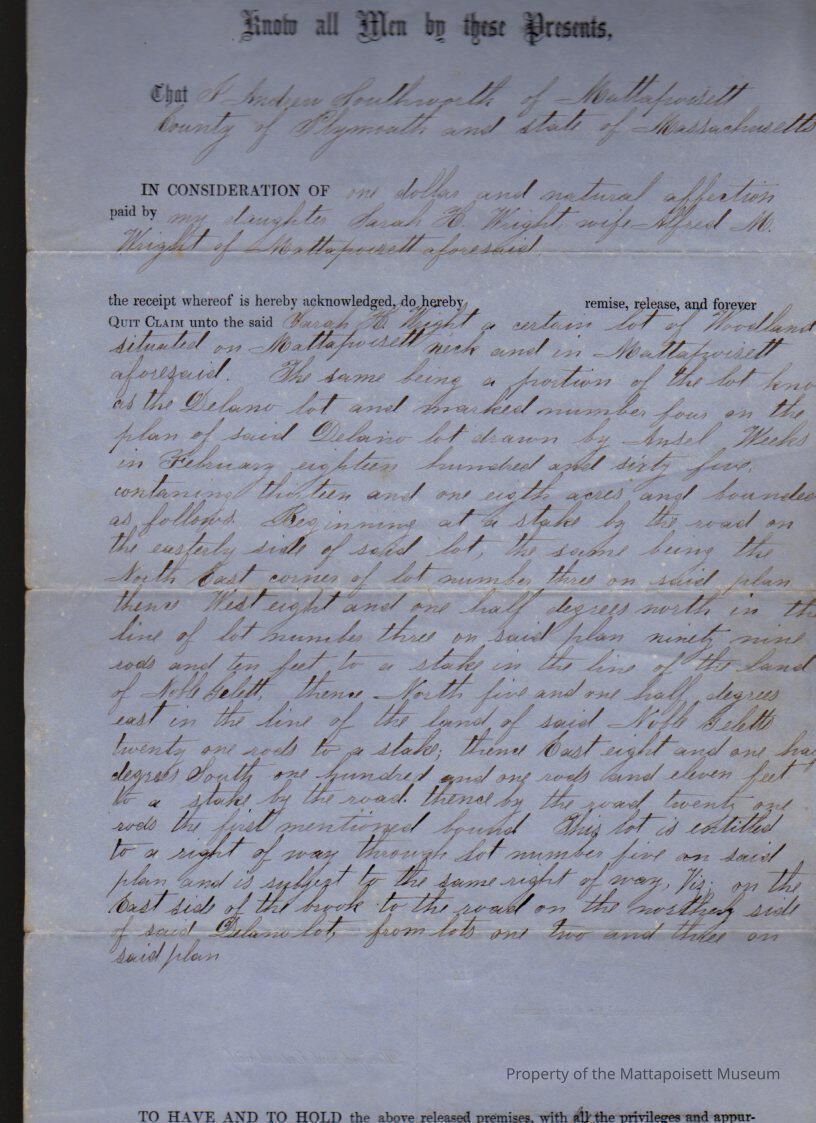 Know all Men by these Presents,
That I Andrew Southworth of Mattapoisett
County of Plymouth and state of Massachusetts
IN CONSIDERATION OF one dollar and natural affection
paid by my daughter Sarah H. Wright, wife Alfred M.
Wright of Mattapoisett aforesaid
the receipt whereof is hereby acknowledged, do hereby remise, release, and forever
QUIT CLAIM unto the said Sarah H. Wright a certain lot of Woodland
situated on Mattapoisett neck and in Mattapoisett
aforesaid. The same being a portion of the lot kno
as the Delano lot and marked number four on the
plan of said Delano lot drawn by Ansel Weeks
in February eighteen hundred and sixty five,
contaning thirteen and one eigth acres and bounded
as follows. Beginning at a stake by the road on
the easterly side of said lot, the same being the
North East corner of lot number three on said plan
thence West eight and one half degrees north in the
line of lot number three on said plan ninety nine
rods and ten feet to a stake in the line of the land
of Noble Gelett, thence North five and one half degrees
east in the line of the land of said Noble Geletts
twenty one rods to a stake; thence East eight and one hal
degrees South one hundred and one rods and eleven feet
to a stake by the road. thence by the road twenty one
rods the first mentioned bound This lot is entitled
to a right of way through lot number five on said
plan and is subject to the same right of way, Viz; on the
East side of the brook to the road on the northerly side
of said Delano lot, from lots one two and three on
said plan
Property of the Mattapoisett Museum
TO HAVE AND TO HOLD the above released premises, with all the privileges and appur-